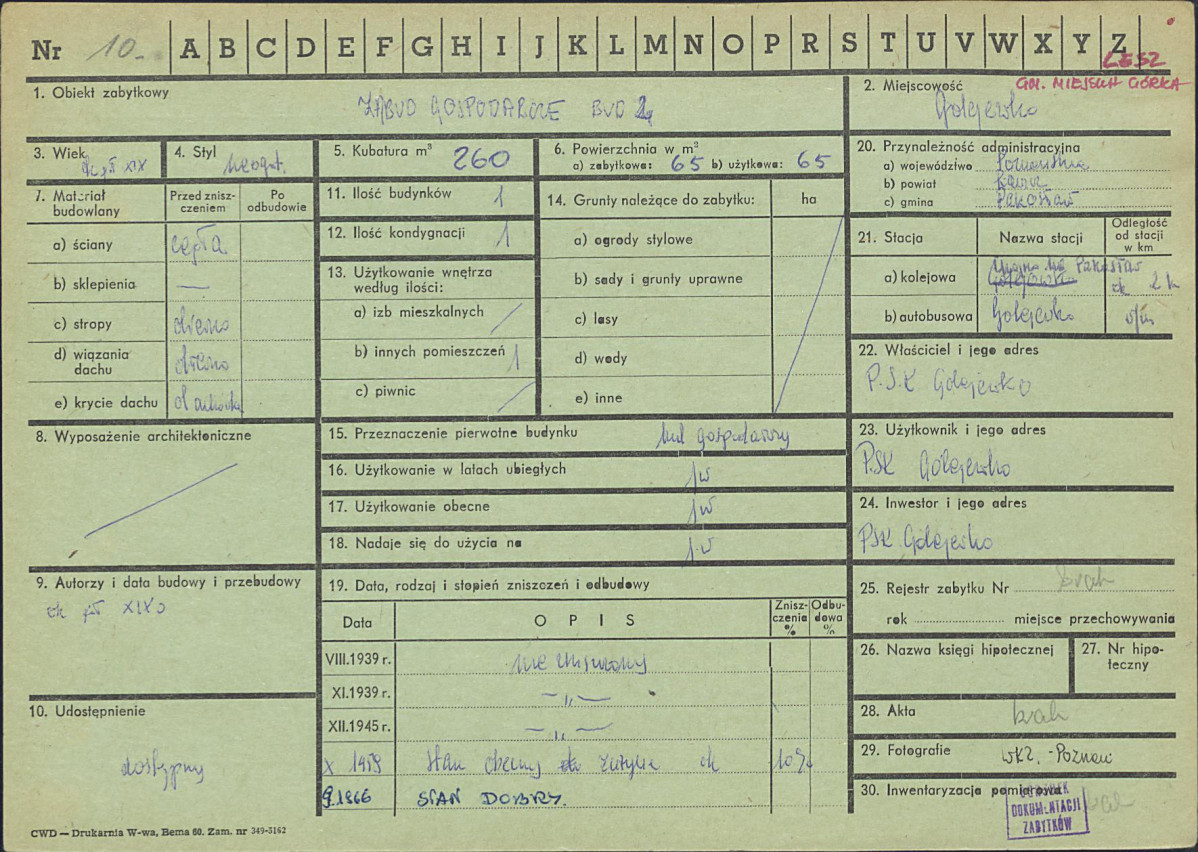 Nr 10 A B C D E F G H I J K L M N O P R S T U V W X Y Z
LESZ
GM. MIEJSKA GÓRKA
1. Obiekt zabytkowy
ZABUD GOSPODARCZE BUD
2. Miejscowość
Golejewko
3. Wiek
XIX
4. Styl
neogot.
5. Kubatura m³ 260
6. Powierzchnia w m²
a) zabytkowa: 65 b) użytkowa: 65
20. Przynależność administracyjna
a) województwo Poznańskie
b) powiat Rawicz
c) gmina Pakosław
7. Materiał budowlany
Przed znisz-
czeniem
Po
odbudowie
a) ściany cegła
b) sklepienia —
c) stropy drewno
d) wiązania dachu drewno
e) krycie dachu dachówka
11. Ilość budynków 1
12. Ilość kondygnacji 1
13. Użytkowanie wnętrza
według ilości:
a) izb mieszkalnych
b) innych pomieszczeń 1
c) piwnic
14. Grunty należące do zabytku: ha
a) ogrody stylowe
b) sady i grunty uprawne
c) lasy
d) wody
e) inne
21. Stacja Nazwa stacji
Odległość
od stacji
w km
a) kolejowa Golejewko Pakosław ok 2 k
b) autobusowa Golejewko
22. Właściciel i jego adres
P.S.K Golejewko
8. Wyposażenie architektoniczne
15. Przeznaczenie pierwotne budynku bud gospodarczy
16. Użytkowanie w latach ubiegłych jw
17. Użytkowanie obecne jw
18. Nadaje się do użycia na j.w
23. Użytkownik i jego adres
PSK Golejewko
24. Inwestor i jego adres
PSK Golejewko
9. Autorzy i data budowy i przebudowy
ok poł XIX
19. Data, rodzaj i stopień zniszczeń i odbudowy
Data OPIS
Znisz-
czenia
%
Odbu-
dowa
%
VIII.1939 r. nie zniszczony
XI.1939 r. — „ —
XII.1945 r. — „ —
X 1959 Stan obecny zużycie ok 10%
9.1966 STAN DOBRY.
25. Rejestr zabytku Nr brak
rok miejsce przechowywania
26. Nazwa księgi hipotecznej
27. Nr hipo-
teczny
10. Udostępnienie
dostępny
28. Akta brak
29. Fotografie WKZ. -Poznań
30. Inwentaryzacja pomiarowa brak
OŚRODEK
DOKUMENTACJI
ZABYTKÓW
CWD — Drukarnia W-wa, Bema 60. Zam. nr 349-5162